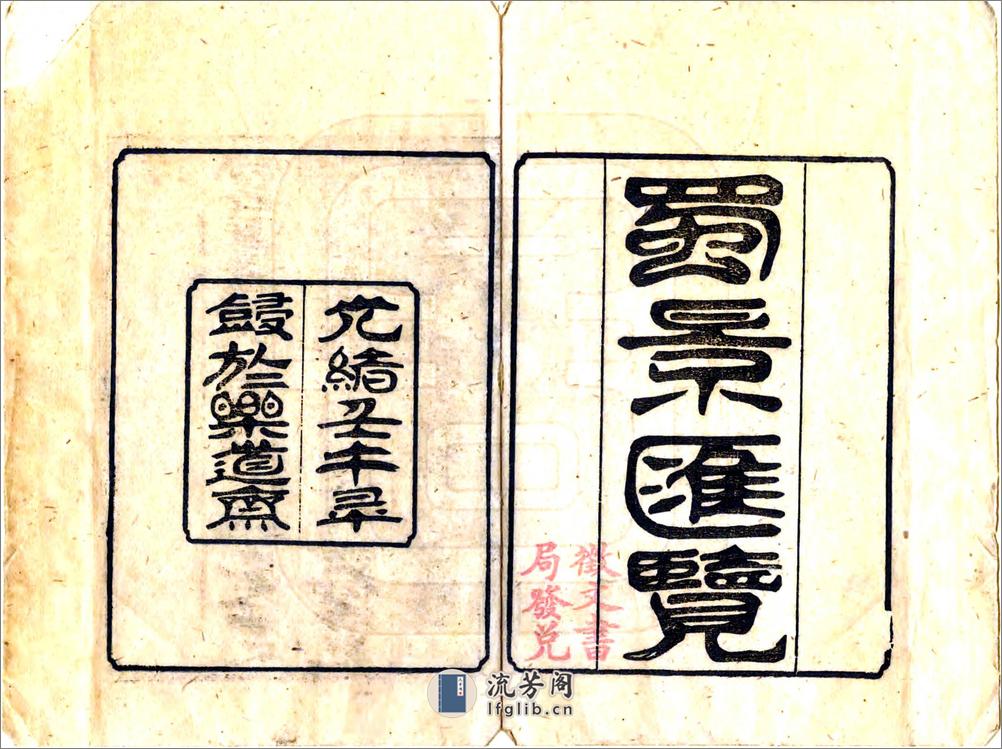 蜀景匯覽
徵文書
局發兌
光緒壬午
鋟於樂道齋
流芳阁
lfglib.cn